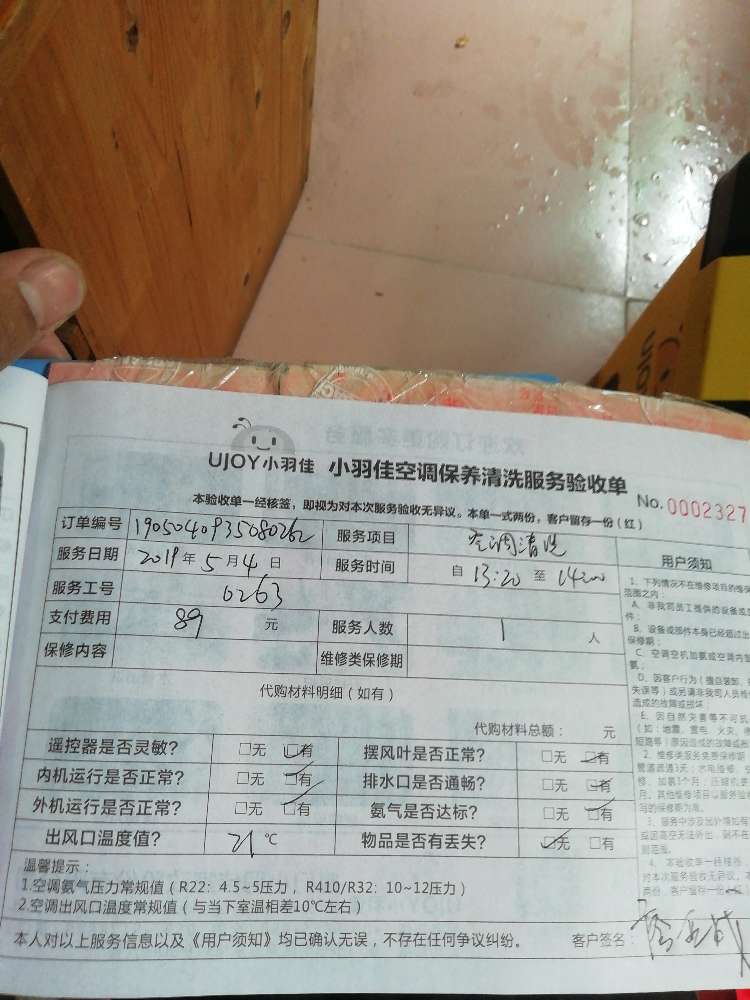 UJOY
UJOY小羽佳 小羽佳空调保养清洗服务验收单
No.0002327
本验收单一经核签，即视为对本次服务验收无异议。本单一式两份，客户留存一份（红）
订单编号 1905040935080262 服务项目 空调清洗
服务日期 2019年5月4日 服务时间 自 13:20 至 14:00
服务工号 0263
支付费用 89 元 服务人数 1 人
保修内容 维修类保修期
代购材料明细（如有）
代购材料总额： 元
遥控器是否灵敏？ □无 □有 摆风叶是否正常？ □无 □有
内机运行是否正常？ □无 □有 排水口是否通畅？ □无 □有
外机运行是否正常？ □无 □有 氨气是否达标？ □无 □有
出风口温度值？ 21 ℃ 物品是否有丢失？ □无 □有
温馨提示：
1.空调氨气压力常规值（R22：4.5~5压力，R410/R32：10~12压力）
2.空调出风口温度常规值（与当下室温相差10℃左右）
本人对以上服务信息以及《用户须知》均已确认无误，不存在任何争议纠纷。 客户签名：
用户须知
1、下列情况不在维修项目的维保
范围之内：
A、非我司员工提供的设备或
件；
B、设备或部件本身已经超过出
保修期；
C、空调空机加氨或空调内
氨；
D、因客户行为（擅自装卸、
失误等）或另请非我司人员
造成的故障或损坏；
E、因自然灾害等不可抗
（如：地震、雷电、火灾、
短路等）原因造成的故障或